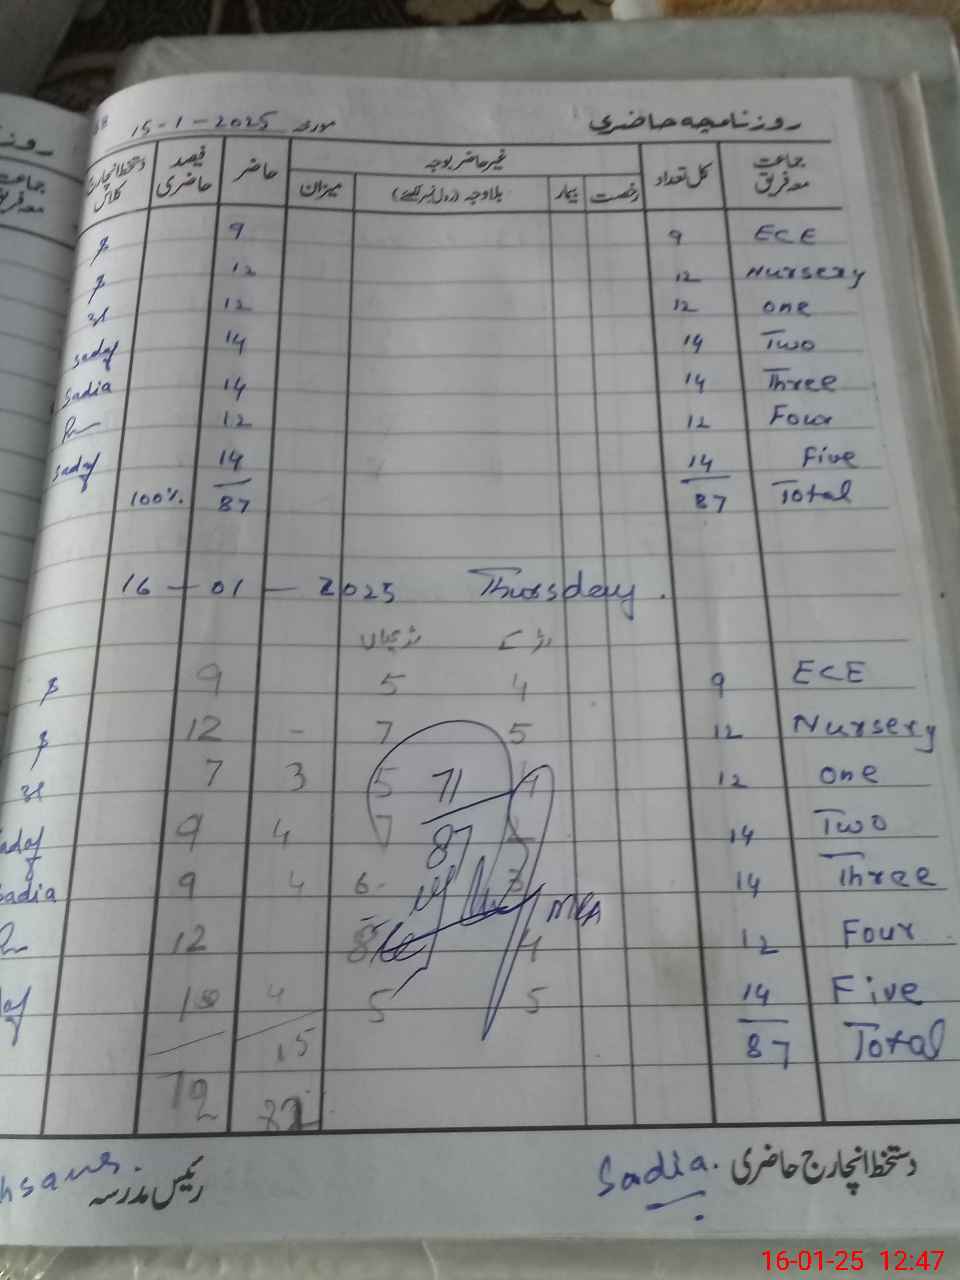 روزنامچہ حاضری مورخہ 15-1-2025
جماعت معہ فریق کل تعداد غیر حاضر بوجہ حاضر فیصد حاضری دستخط انچارج کلاس
رخصت بیمار بلاوجہ (رول نمبر لکھیئے) میزان
ECE 9 9
Nursery 12 12
one 12 12
Two 14 14 sadaf
Three 14 14 Sadia
Four 12 12
Five 14 14 sadaf
Total 87 87 100%
16-01-2025 Thursday.
لڑکے لڑکیاں
ECE 9 4 5 9
Nursery 12 5 7 - 12
one 12 4 5 3 7
71
Two 14 7 4 9
87
Three 14 3 6- 4 9 Sadia
MEA
Four 12 4 8 12
Five 14 5 5 4
Total 87 15
72
دستخط انچارج حاضری Sadia. رئیس مدرسہ
16-01-25 12:47